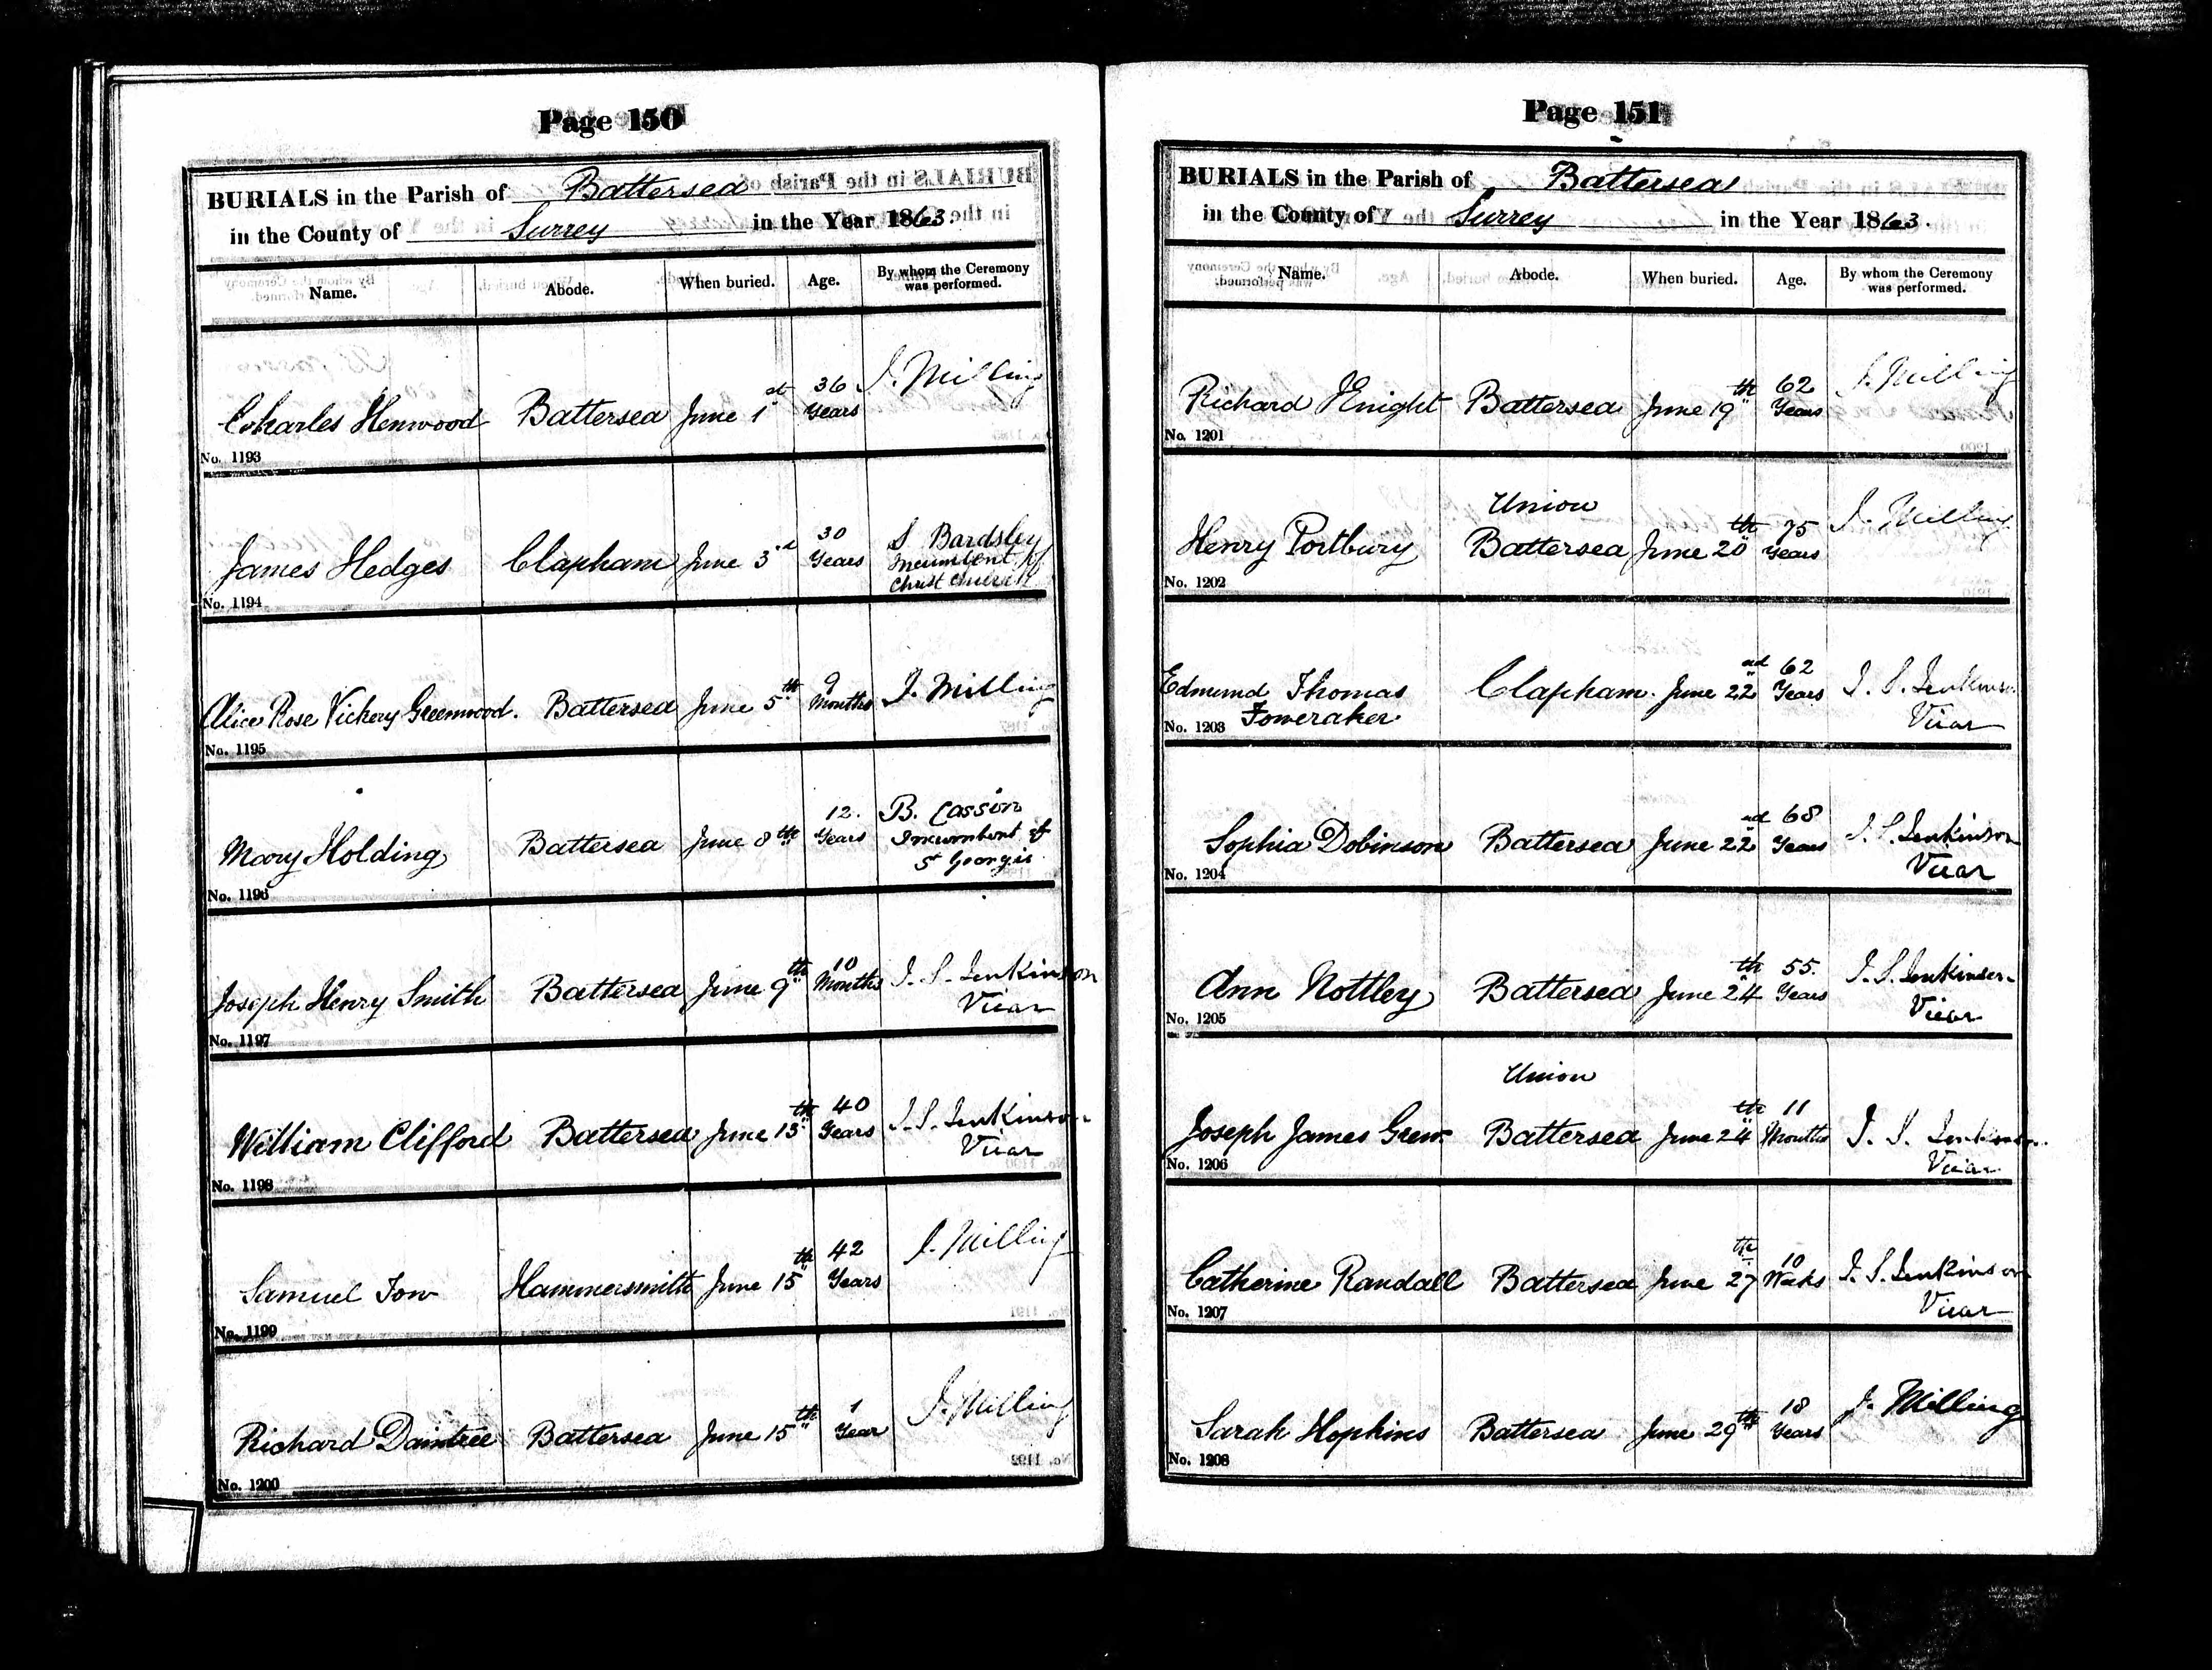 Page 150
BURIALS in the Parish of Battersea
in the County of Surrey in the Year 1863.
Name. Abode. When buried. Age. By whom the Ceremony was performed.
Charles Henwood Battersea June 1st 36 Years J. Milling
No. 1193
James Hedges Clapham June 3d 30 Years S Bardsley Incumbent of Christ Church
No. 1194
Alice Rose Vickery Greenwood. Battersea June 5th 9 Months J. Milling
No. 1195
Mary Holding Battersea June 8th 12. Years B. Cassin Incumbent of St Georges
No. 1196
Joseph Henry Smith Battersea June 9th 10 Months J. S. Jenkinson Vicar
No. 1197
William Clifford Battersea June 13th 40 Years J. S. Jenkinson Vicar
No. 1198
Samuel Tow Hammersmith June 15th 42 Years J. Milling
No. 1199
Richard Daintree Battersea June 15th 1 Year J. Milling
No. 1200
Page 151
BURIALS in the Parish of Battersea
in the County of Surrey in the Year 1863.
Name. Abode. When buried. Age. By whom the Ceremony was performed.
Richard Knight Battersea June 19th 62 Years J. Milling
No. 1201
Henry Portbury Union Battersea June 20th 75 Years J. Milling
No. 1202
Edmund Thomas Toweraker Clapham. June 22nd 62 Years J. S. Jenkinson Vicar
No. 1203
Sophia Dobinson Battersea June 22nd 68 Years J. S. Jenkinson Vicar
No. 1204
Ann Nottley Battersea June 24th 55. Years J. S. Jenkinson Vicar
No. 1205
Joseph James Grew Union Battersea June 24th 11 Months J. S. Jenkinson Vicar
No. 1206
Catherine Randall Battersea June 27th 10 Weeks J. S. Jenkinson Vicar
No. 1207
Sarah Hopkins Battersea June 29th 18 Years J. Milling
No. 1208